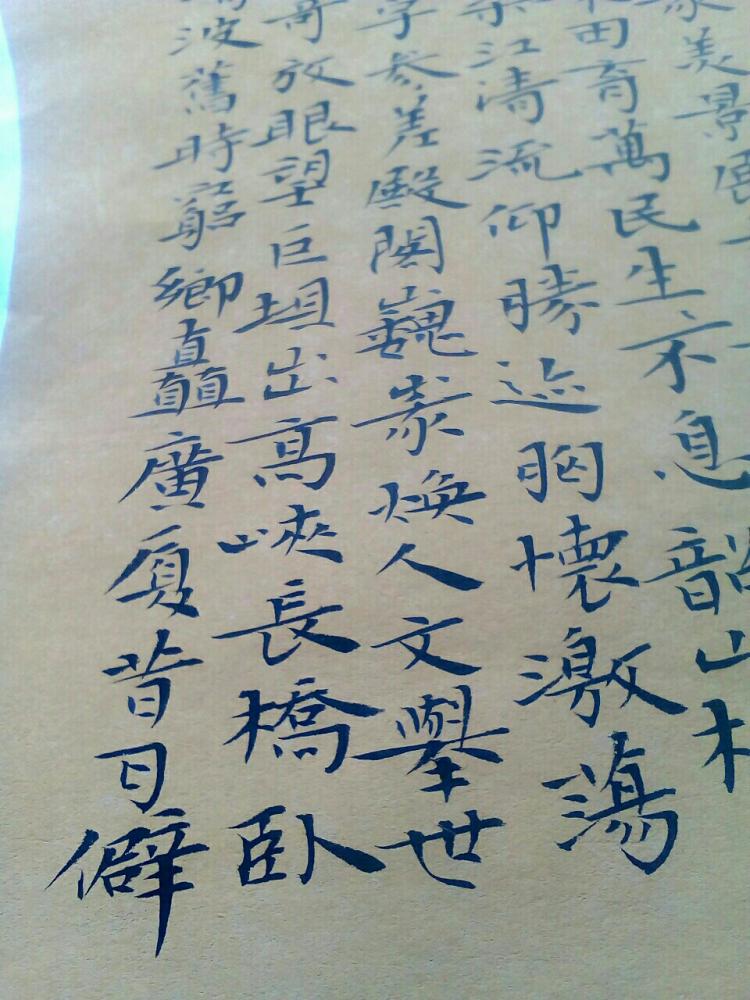 美景
田育萬民生不息韶山
江濤流仰勝迹胸懷激蕩
宇參差殿閣巍峩煥人文舉世
哥放眼望巨垻出高峽長橋卧
波舊時窮鄉矗廣廈昔日僻